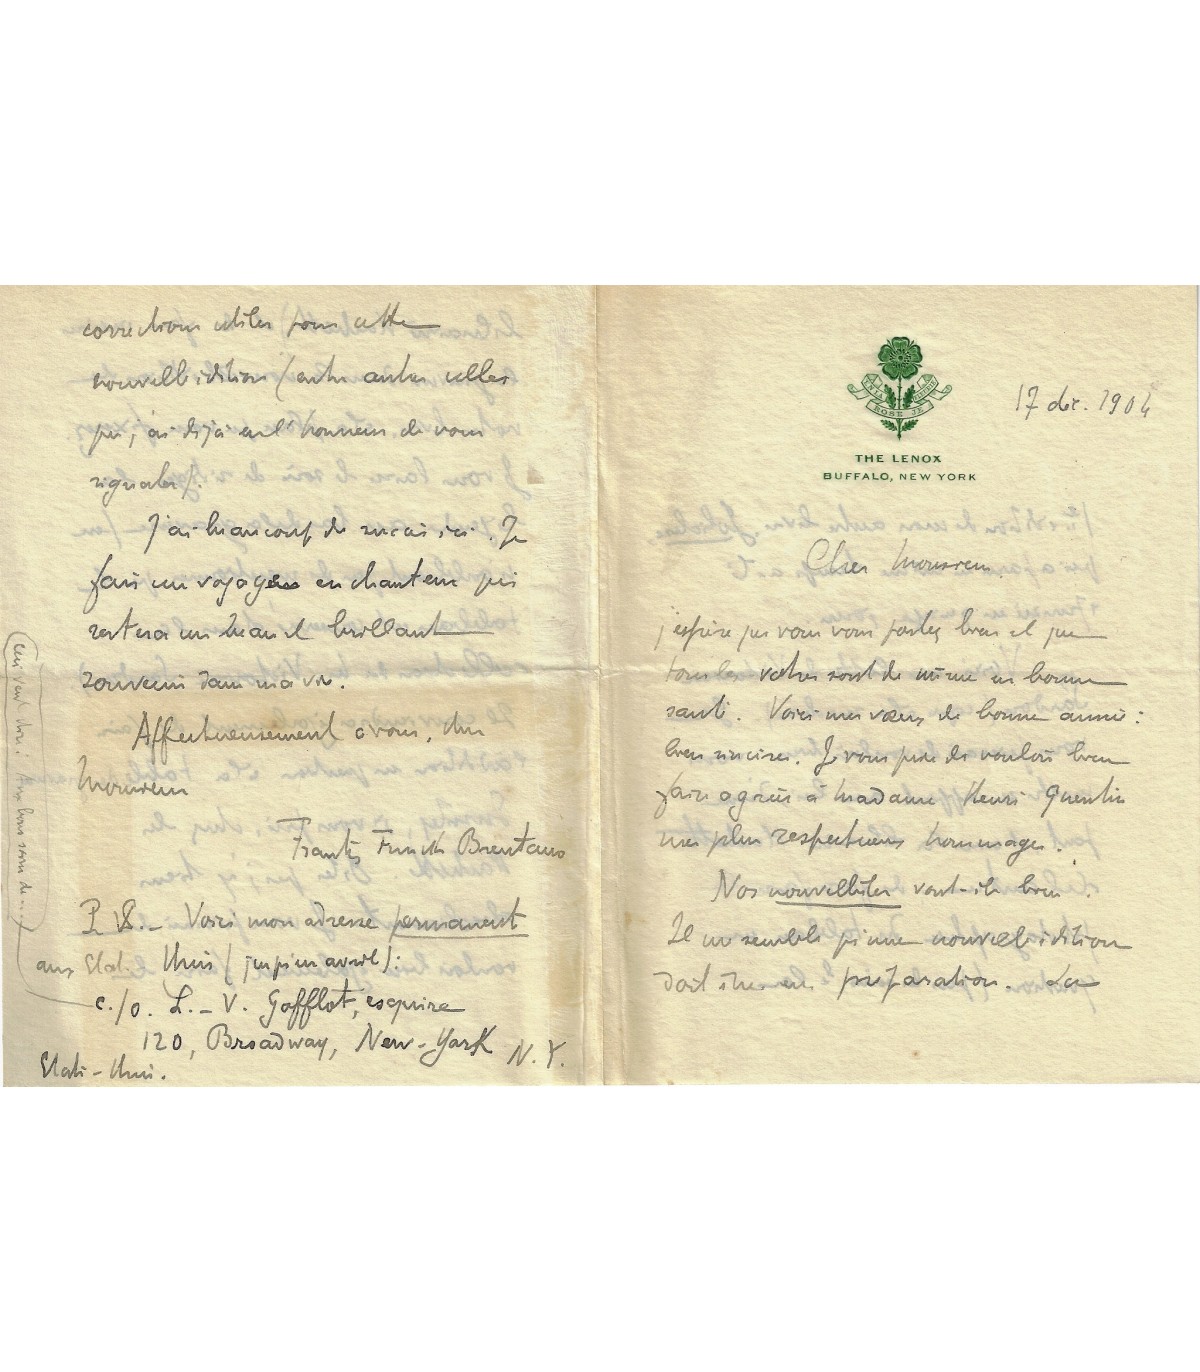 THE LENOX
BUFFALO, NEW YORK
17 déc. 1904
Cher Monsieur,
j'espère que vous vous portez bien et que
tous les vôtres sont de même en bonne
santé. Voici mes vœux de bonne année :
bien sincères. Je vous prie de vouloir bien
faire agréer à Madame Henri Quentin
mes plus respectueux hommages.
Nos nouvellistes vont-ils bien
Il me semble qu'une nouvelle édition
doit être en préparation. Les
corrections utiles pour cette
nouvelle édition (entre autres celles
que j'ai déjà eu l'honneur de vous
signaler).
J'ai beaucoup de succès ici. Je
fais un voyage enchanteur qui
restera un beau et brillant
souvenir dans ma vie.
Affectueusement à vous, cher
Monsieur
Frantz Funck Brentano
P. S. – Voici mon adresse permanente
aux États Unis (jusqu'en avril) :
c./o. L. – V. Gofflot, esquire
120, Broadway, New-York N. Y.
États-Unis.
ceci veut dire : Aux bons soins de